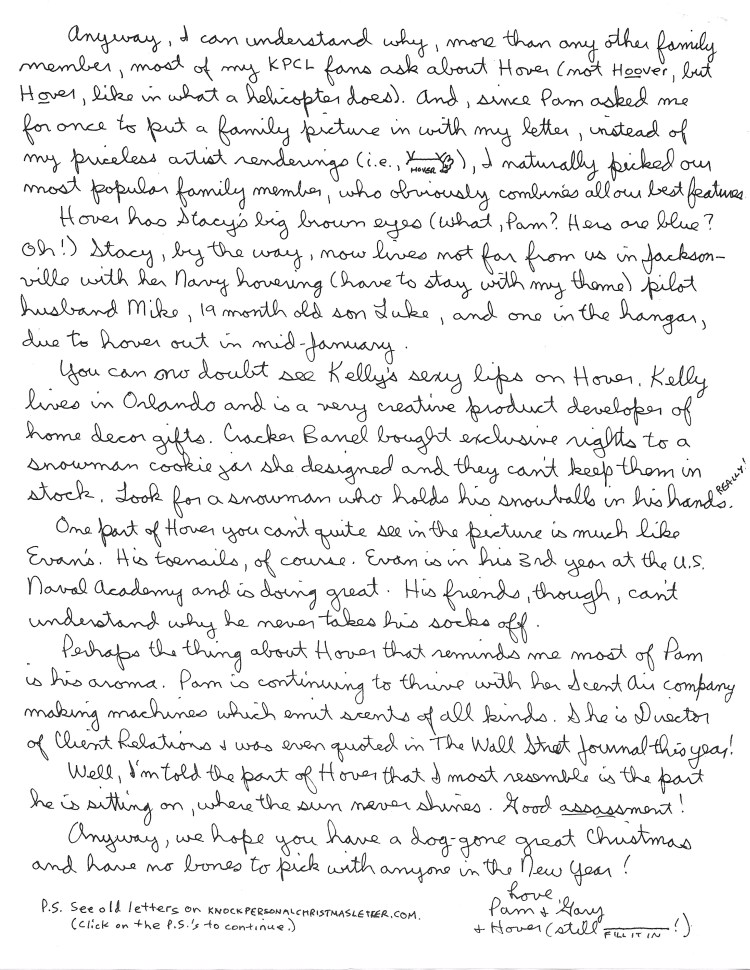 Anyway, I can understand why, more than any other family
member, most of my KPCL fans ask about Hover (not Hoover, but
Hover, like in what a helicopter does). And, since Pam asked me
for once to put a family picture in with my letter, instead of
my priceless artist renderings (i.e., HOVER), I naturally picked our
most popular family member, who obviously combines all our best features.
Hover has Stacy's big brown eyes (What, Pam? Hers are blue?
Oh!) Stacy, by the way, now lives not far from us in Jackson-
ville with her Navy hovering (have to stay with my theme) pilot
husband Mike, 19 month old son Luke, and one in the hangar,
due to hover out in mid-January.
You can no doubt see Kelly's sexy lips on Hover. Kelly
lives in Orlando and is a very creative product developer of
home decor gifts. Cracker Barrel bought exclusive rights to a
snowman cookie jar she designed and they can't keep them in
stock. Look for a snowman who holds his snowballs in his hands. REALLY!
One part of Hover you can't quite see in the picture is much like
Evan's. His toenails, of course. Evan is in his 3rd year at the U.S.
Naval Academy and is doing great. His friends, though, can't
understand why he never takes his socks off.
Perhaps the thing about Hover that reminds me most of Pam
is his aroma. Pam is continuing to thrive with her Scent Air company
making machines which emit scents of all kinds. She is Director
of Client Relations & was even quoted in The Wall Street Journal this year!
Well, I'm told the part of Hover that I most resemble is the part
he is sitting on, where the sun never shines. Good assassment!
Anyway, we hope you have a dog-gone great Christmas
and have no bones to pick with anyone in the New Year!
Love,
Pam & Gary
& Hover (still ______!)
FILL IT IN
P.S. See old letters on KNOCKPERSONALCHRISTMASLETTER.COM.
(Click on the P.S.'s to continue.)